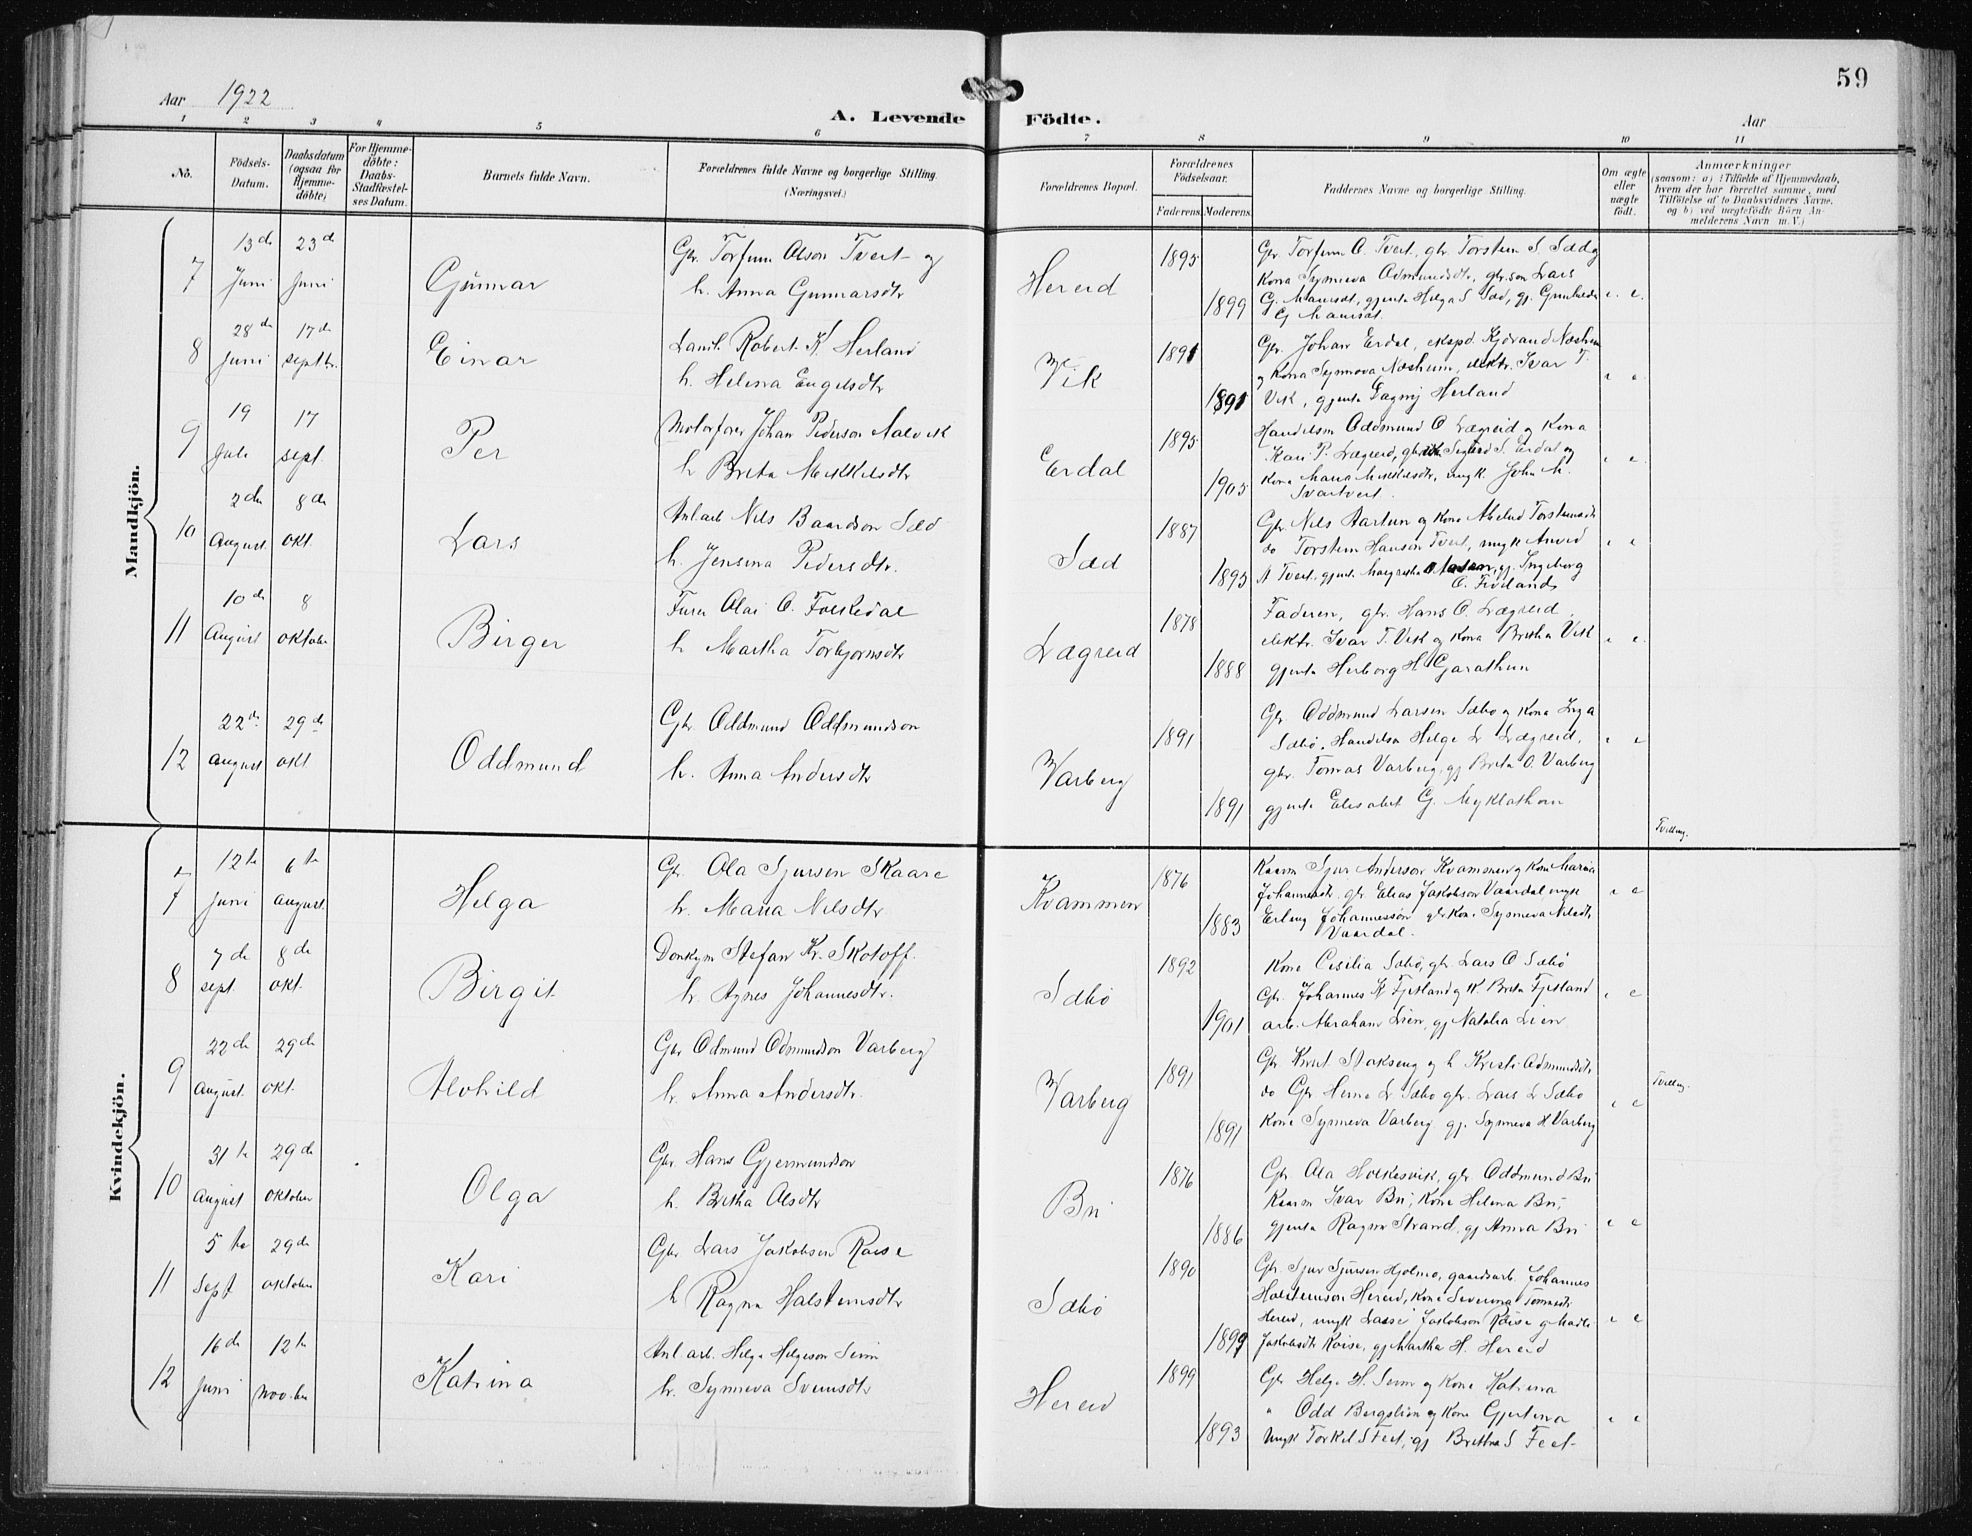 59
Aar 1922
A. Levende Födte.
Aar
1 2 3 4 5 6 7 8 9 10 11
No.
Födsels-
Datum.
Daabsdatum
(ogsaa for
Hjemme-
döbte)
For Hjemme-
döbte:
Daabs-
Stadfæstel-
ses Datum.
Barnets fulde Navn.
Forældrenes fulde Navne og borgerlige Stilling.
(Næringsvei.)
Forældrenes Bopæl.
Forældrenes
Födselsaar.
Faderens. Moderens.
Faddernes Navne og borgerlige Stilling.
Om ægte
eller
uægte
födt.
Anmærkninger
(saasom: a) i Tilfælde af Hjemmedaab,
hvem der har forrettet samme, med
Tilföielse af to Daabsvidners Navne.
og b) ved uægtefödte Börn An-
melderens Navn m. V.)
Mandkjön.
7
13de Juni
23de Juni
Gunnar
Gbr. Torfinn Olson Tveit og
h. Anna Gunnarsdtr
Hereid
1895
1899
Gbr Torfinn O. Tveit, gbr. Torstein S. Sæd og
Kona Synneva Odmundsdtr, gbr.son Lars
G. Maursæt, gjenta Helga S Sæd, gj. Gunhilda
G Maursæt.
e. e.
8
28de Juni
17de septbr.
Einar
Robert K. Herland
h. Helena Engelsdtr
Vik
1891
1891
Gbr. Johan Erdal, ekspd. Næsheim
og Kona Synneva Næsheim, elektr. Ivar T.
Vik, gjenta Herland
e e
9
19 Juli
17 sept.
Per
Motorfører Johan Pederson Aalvik
h Brita Mikkelsdtr
Erdal
1895
1905
Handelsm Oddmund O Lægreid og Kona
Kari P. Lægreid, S. Erdal og
Kona Maria Mikkelsdtr, ungk. John M.
Svartveit.
e e
10
2de August.
8de okt.
Lars
Anl.arb Nils Baardson Sæd
h. Jensina Pedersdtr.
Sæd
1887
1895
Gbr. Nils Aartun og Kone Torsteinsdtr
do Torstein Hanson Tveit, ungk
A Tveit, gjenta gj. Ingeborg
O.
e e
11
10de August
8 oktober
Birger
Furer Olai O. Folkedal
h Martha Torbjornsdtr
Lægreid
1878
1888
Faderen, gbr. Hans O. Lægreid,
elektr. Ivar T. Vik og Kona Britha Vik
gjenta Herborg H. Garathun
e e.
12
22de August
29de okt
Oddmund
Gbr. Oddmund Oddmundson
h. Anna Andersdtr
Varberg
1891
1891
Gbr. Oddmund Larsen Sæbø og Kona Inga
Sæbø. Handelsm Helge L Lægreid,
gbr. Tomas Varberg, gj Brita O. Varberg
gjenta Elisabet G. Myklathun
e e
Tvilling.
Kvindekjön.
7
12te Juni
6te August.
Helga
Gbr. Ola Sjurson Skaare
h. Maria Nilsdtr
Kvammen
1876
1883
Kaarm Sjur Anderson Kvammen og Kone Maria
Johannesdtr. gbr Elias Jakobson Vaardal, ungk
Erling Johannesson gbrkone Synneva Nilsdtr
Vaardal.
e e
8
7de sept.
8de okt.
Birgit
Stefan Kr. Skotoff.
h. Agnes Johannesdtr.
Sæbø
1892
1901
Kone Cecilia Sæbø, gbr. Lars O Sæbø
Gbr. Johannes K Fjetland og K. Brita Fjetland
arb. Abraham Lien, gj Natalia Lien
e e
9
22de August.
29de okt.
Alvhild
Gbr Odmund Odmundson Varberg
h. Anna Andersdtr.
Varberg
1891
1891
Gbr Knut Stokseng og h Kristi Odmundsdtr
do Gbr L Sæbø gbr. Lars L Sæbø
Kone Synneva Varberg gj. Synneva H Varberg
e e
Tvilling.
10
31te August
29de oktober
Olga
Gbr. Hans Gjermundson
h. Britha Olsdtr
Bu
1876
1886
Gbr Ola Holkesvik, gbr Oddmund Bu
Kaarm Ivar Bu, Kone Helena Bu,
gjenta Ragna Strand, gj Anna Bu
e e
11
5te Sept
29de oktober
Kari
Gbr Lars Jakobsen Røise
h Ragna Halsteinsdtr
Sæbø
1890
1899
Gbr. Sjur Sjurson Hjolmo, gaardsarb. Johannes
Halsteinson Hereid, Kone Severina Tomasdtr
Hereid, ungk Lasse Jakobson Røise gj
Jakobsdtr Røise, gj Martha H. Hereid
e e
12
16de Juni
12te nov.br
Katrina
Anl. arb. Helge Helgeson Seim
h. Synneva Sveinsdtr
Hereid
1899
1893
Gbr Helge H. Seim og Kone Katrina
" Odd Bergstein og Kone Gjertina
ungk Torkel S Feet, gj Britha S Feet
e e